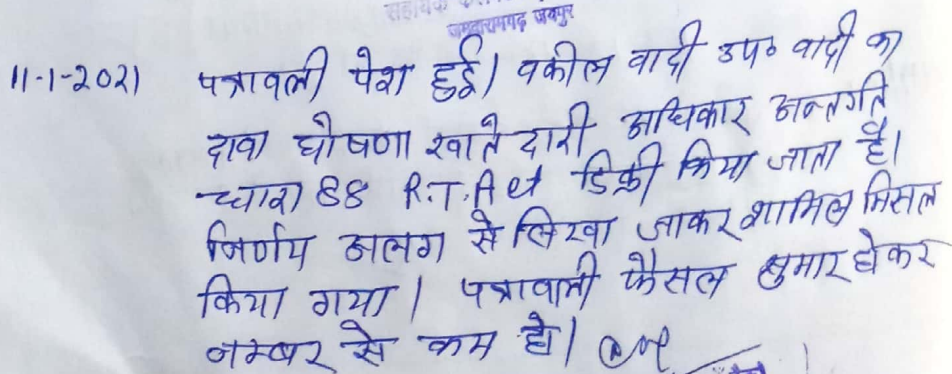 सहायक कलक्टर
जमवारामगढ़ जयपुर
11-1-2021 पत्रावली पेश हुई। वकील वादी उप० वादी का
दावा घोषणा खातेदारी अधिकार अन्तर्गत
धारा 88 R.T.Act डिक्री किया जाता है।
निर्णय अलग से लिखा जाकर शामिल मिसल
किया गया। पत्रावली फैसल शुमार होकर
नम्बर से कम हो।